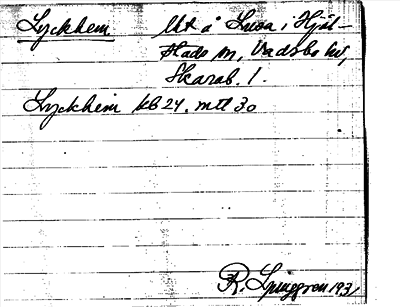 Lyckhem lht å Lusa i Hjäl-
stads sn, Vadsbo hd,
Skarab. l.
Lyckheim kb 24. mtl 30
R. Ljunggren 1931